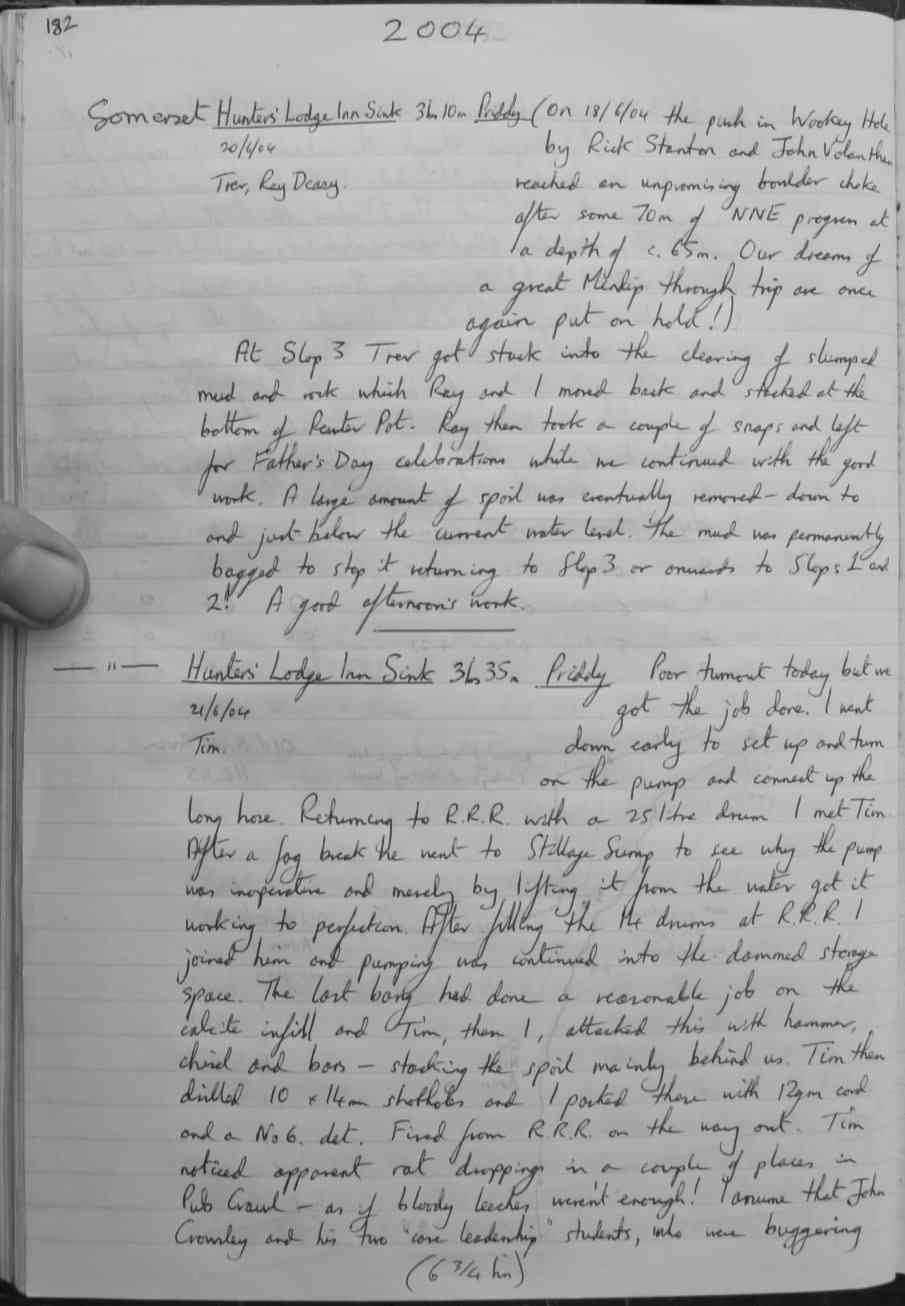 182
2004
Somerset Hunters' Lodge Inn Sink 3h10m Priddy (On 18/6/04 the push in Wookey Hole
20/6/04 by Rick Stanton and John Volanthen
Trev, Ray Deasy. reached an unpromising boulder choke
after some 70m of NNE progress at
a depth of c. 65m. Our dreams of
a great Mendip through trip are once
again put on hold!)
At Slop 3 Trev got stuck into the clearing of slumped
mud and rock which Ray and I moved back and stacked at the
bottom of Pewter Pot. Ray then took a couple of snaps and left
for Father's Day celebrations while we continued with the good
work. A large amount of spoil was eventually removed - down to
and just below the current water level. The mud was permanently
bagged to stop it returning to Slop 3 or onwards to Slops 1 and
2! A good afternoon's work.
— " — Hunters' Lodge Inn Sink 3hrs35m Priddy Poor turnout today but we
21/6/04 got the job done. I went
Tim. down early to set up and turn
on the pump and connect up the
long hose. Returning to R.R.R. with a 25 litre drum I met Tim.
After a fag break he went to Stillage Sump to see why the pump
was inoperative and merely by lifting it from the water got it
working to perfection. After filling the 14 drums at R.R.R. I
joined him and pumping was continued into the dammed storage
space. The last bang had done a reasonable job on the
calcite infill and Tim, then I, attacked this with hammer,
chisel and bars - stacking the spoil mainly behind us. Tim then
drilled 10 x 14mm shotholes and I packed these with 12gm cord
and a No 6. det. Fired from R.R.R. on the way out. Tim
noticed apparent rat droppings in a couple of places in
Pub Crawl - as if bloody leeches weren't enough! I assume that John
Crowsley and his two "cave leadership" students, who were buggering
(6 3/4 hrs)